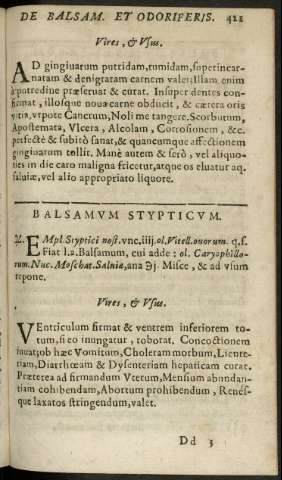 DE BALSAM. ET ODORIFERIS. 421
Vires, & Vsus.
AD gingiuarum putridam, tumidam, superincar-
natam & denigratam carnem valet. Illam enim
à putredine præseruat & curat. Insuper dentes con-
firmat, illosque noua carne obducit, & cætera oris
vitia, vt pote Cancrum, Noli me tangere. Scorbutum,
Apostemata, Vlcera, Alcolam, Corrosionem, &c.
perfectè & subitò sanat, & quancumque affectionem
gingiuarum tollit. Manè autem & serò, vel aliquo-
ties in die caro maligna fricetur, atque os eluatur aq.
saluiæ, vel alio appropriato liquore.
BALSAMVM STYPTICVM.
℞. EMpl. Styptici nost. vnc. iiij. ol. Vitell. ouorum. q.s.
Fiat l.a. Balsamum, cui adde: ol. Caryophillo-
rum. Nuc. Moschat. Saluiæ, ana ℈j. Misce, & ad vsum
repone.
Vires, & Vsus.
VEntriculum firmat & ventrem inferiorem to-
tum, si eo inungatur, roborat. Concoctionem
iuuat; ob hæc Vomitum, Choleram morbum, Liente-
riam, Diarrhœam & Dysenteriam hepaticam curat.
Præterea ad firmandum Vterum, Mensium abundan-
tiam cohibendam, Abortum prohibendum, Renés-
que laxatos stringendum, valet.
Dd 3